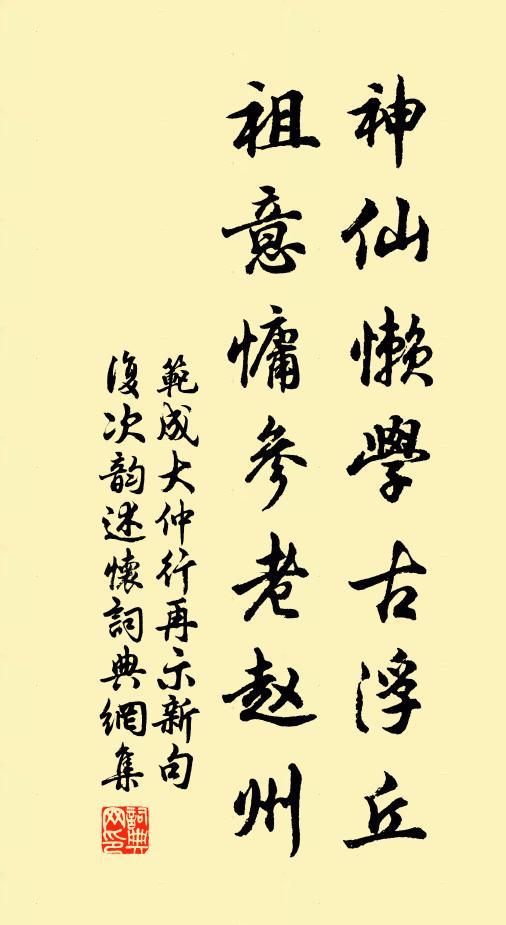 神仙懒學古浮丘
祖意慵參老赵州
範成大仲行再示新句
復次韵述懷詞典網集
詞典网印